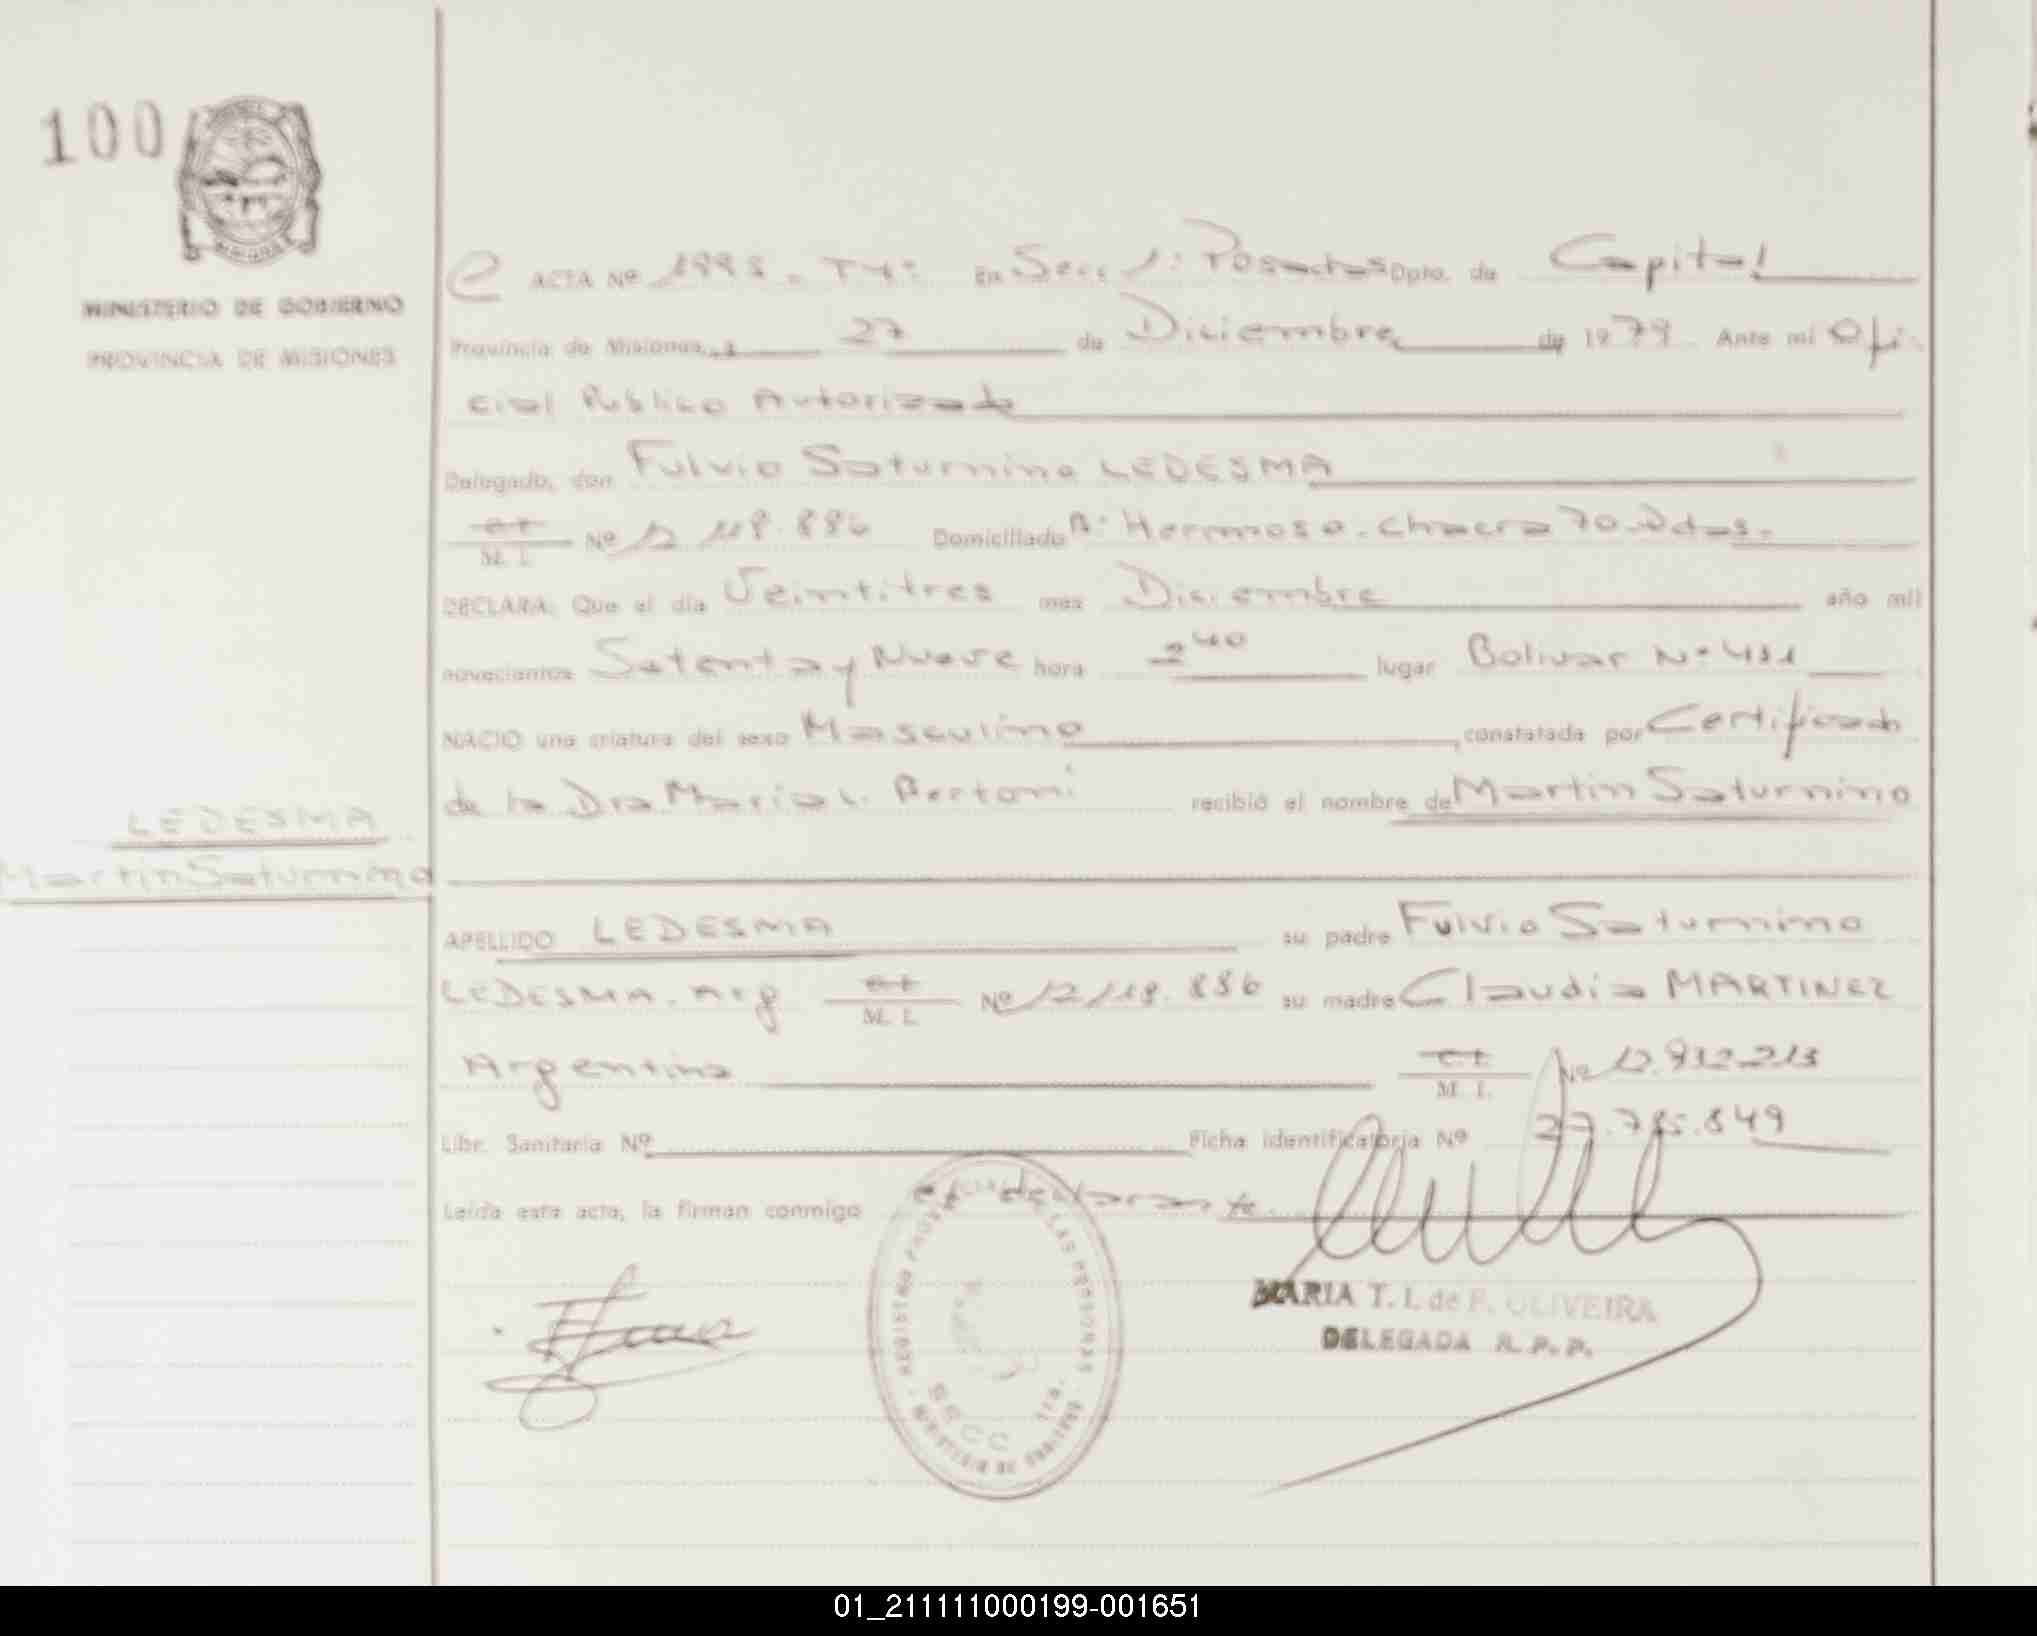 100
MINISTERIO DE GOBIERNO
PROVINCIA DE MISIONES
ACTA Nº 1998 - T4: En Secc 1: Posadas Dpto. de Capital
Provincia de Misiones, a 27 de Diciembre de 1979 Ante mi Ofi
cial Publico Autorizado
Delegado, don Fulvio Saturnino LEDESMA
M. I. Nº 12 118.886 Domiciliado Bº Hermoso. Chacra 70. Pdas.
DECLARA: Que el día Veintitres mes Diciembre año mil
novecientos Setenta y Nueve hora 2 40 lugar Bolivar Nº 411
NACIO una criatura del sexo Masculino, constatada por Certificado
de la Dra Maria L. Bertoni recibió el nombre de Martin Saturnino
LEDESMA
Martin Saturnino
APELLIDO LEDESMA su padre Fulvio Saturnino
LEDESMA. Arg M. I. Nº 12 118.886 su madre Claudia MARTINEZ
Argentina M. I. Nº 12.932.213
Libr. Sanitaria Nº Ficha identificatoria Nº 27.785.849
Leída esta acta, la firman conmigo el declarante.
REGISTRO PROV. DE LAS PERSONAS
SECC 1ra.
MINISTERIO DE GOBIERNO
MARIA T. I. de F. OLIVEIRA
DELEGADA R. P. P.
01_211111000199-001651